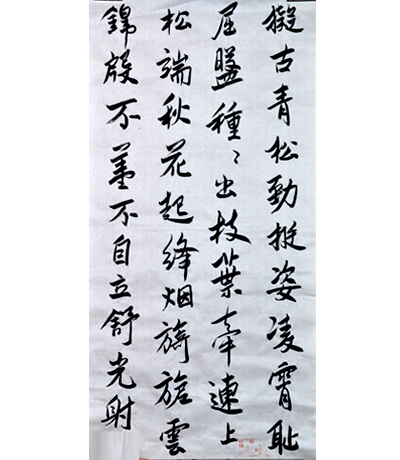 擬古青松勁挺姿凌霄耻
屈盤種〻出枝葉牽連上
松端秋花起絳烟旖旎雲
錦殷不羞不自立舒光射